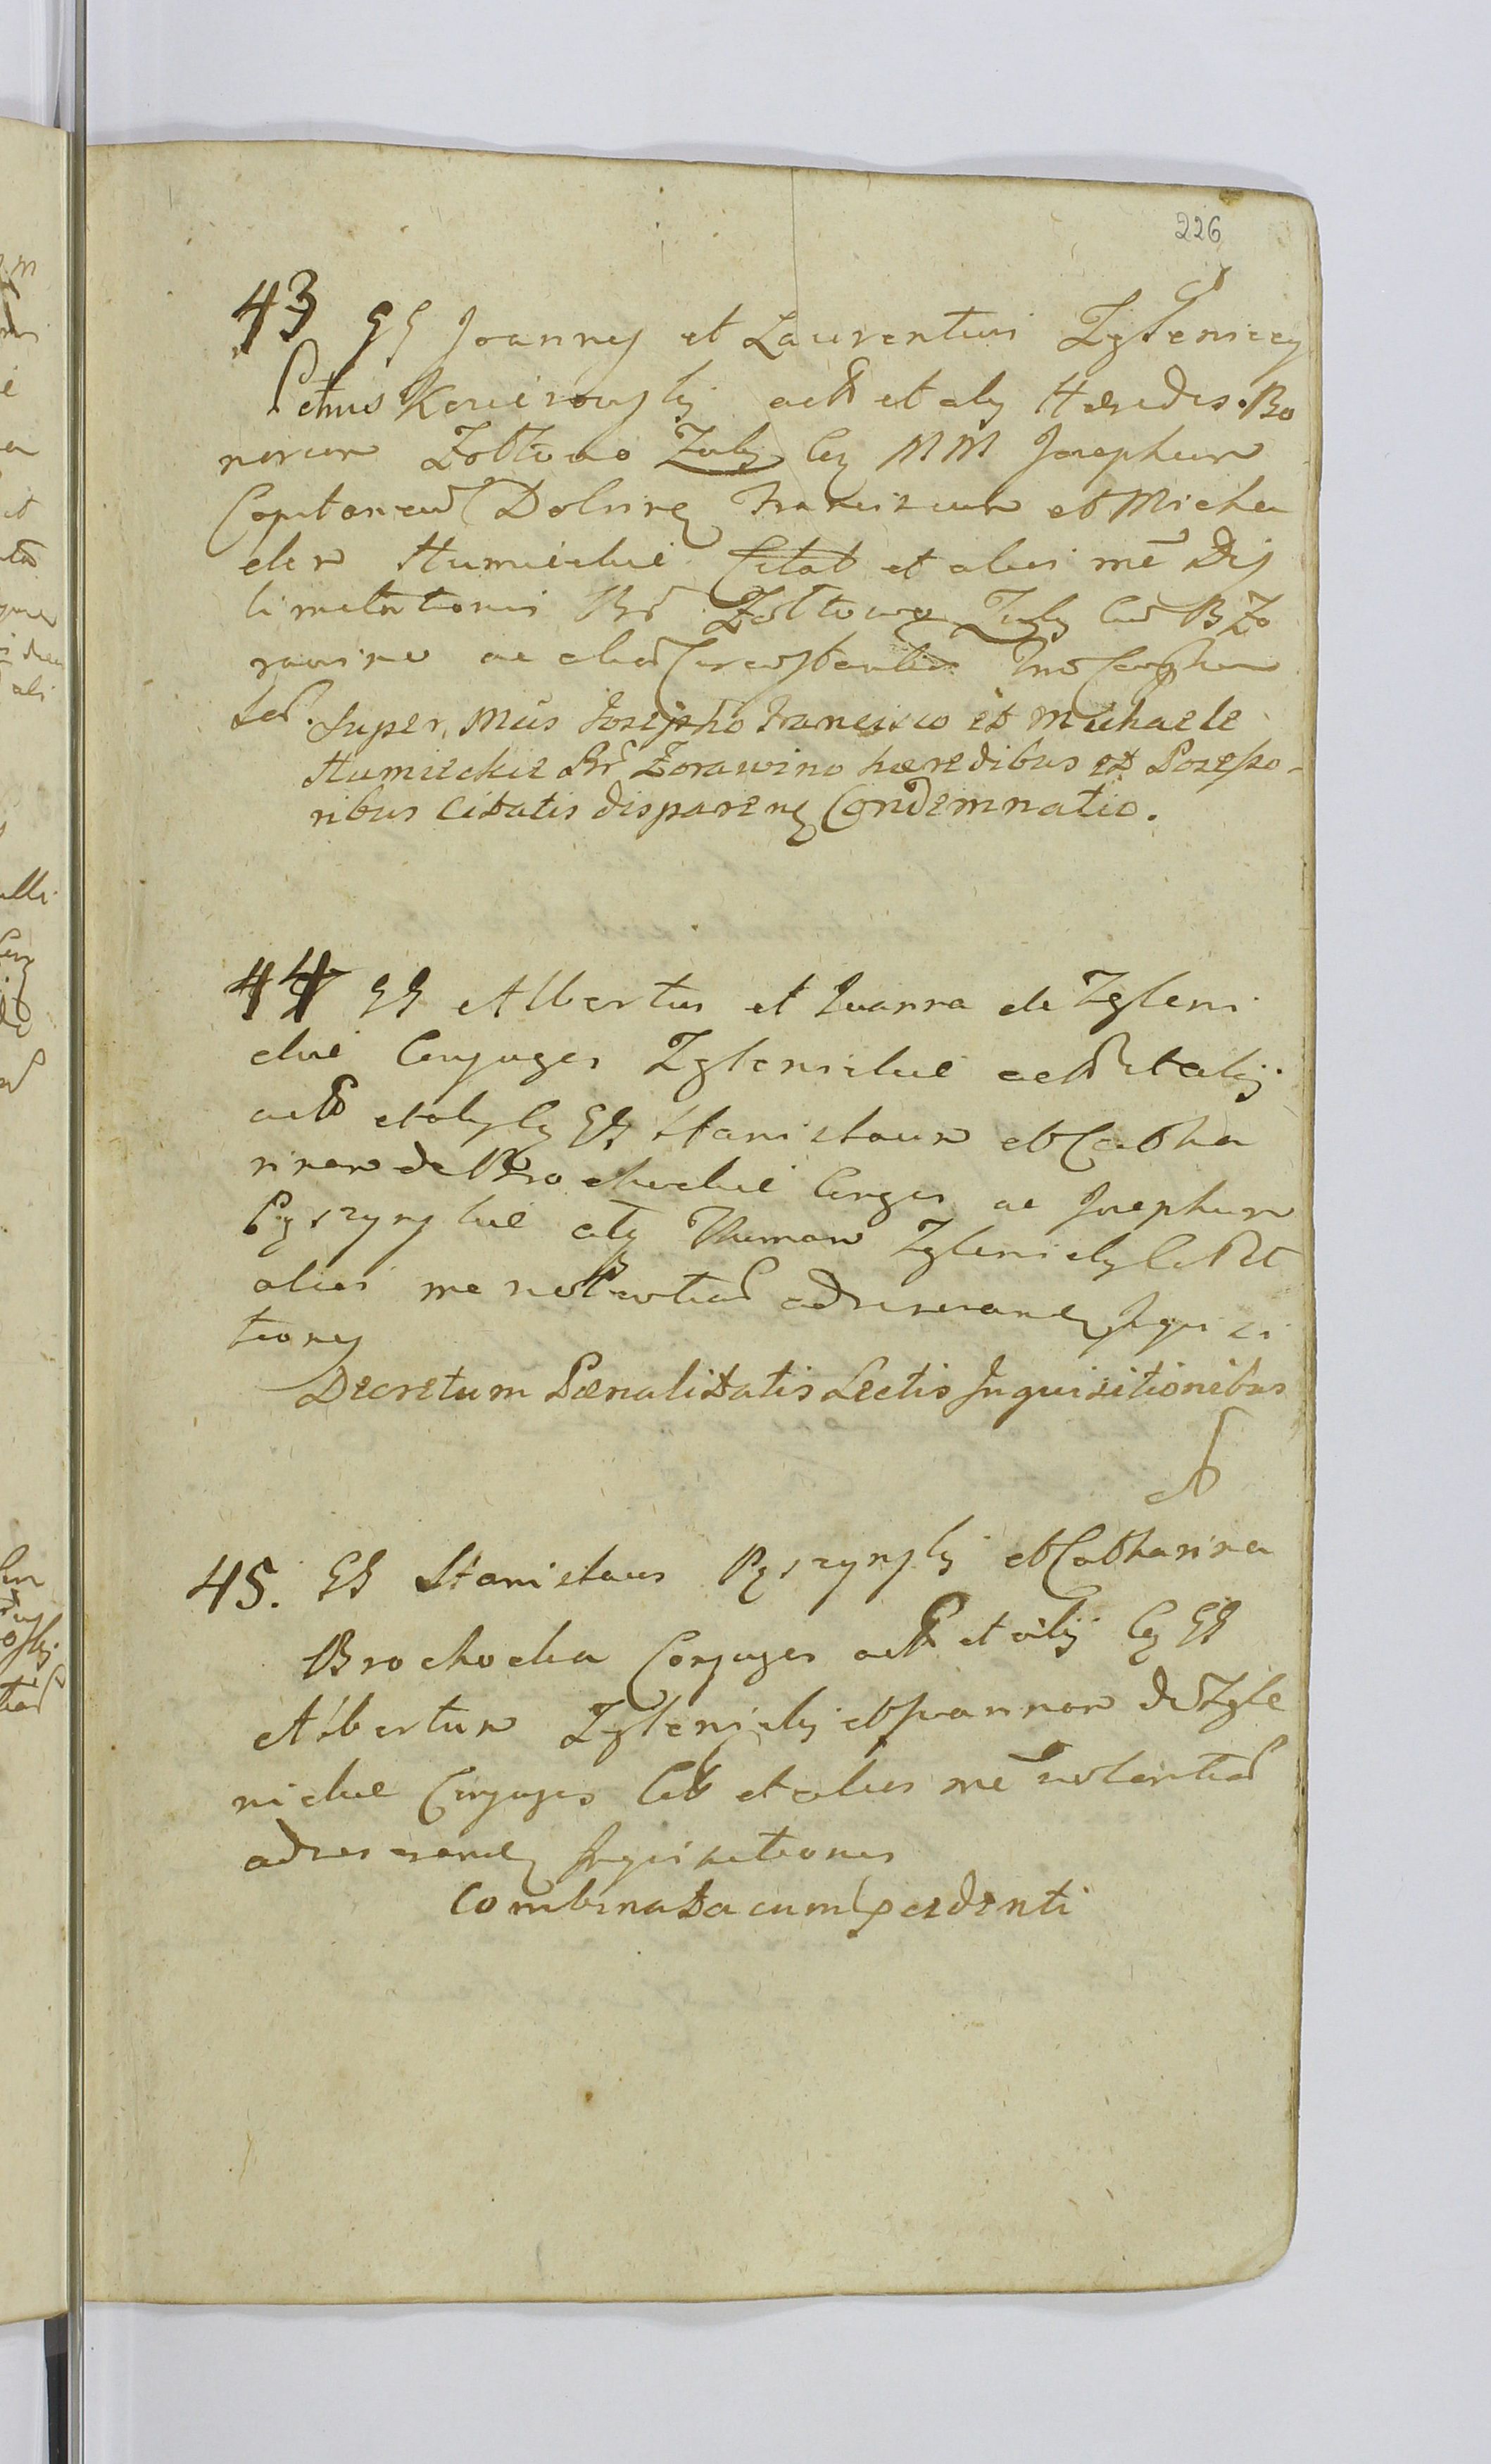 226
43 GG Joannes et Laurentius Zgleniccy
Petrus Karierowsky act et aly Hæredes Bo
norum Zołtowo Zuly Cq MM Josephum
Capitaneum Dolinen Franciscum et Micha
elem Humieckie Citat et alios mē Dis
limitationis Br Zołtowo Zuly cum B Zo
rawino ac alias
ted. Super Mcis Josepho Francisco et Michaele
Humieckie Br Zorawino hæredibus et Possesso-
ribus Citatis disparen Condemnatio.
44 GG Albertus et Joanna de Zgleni
ckie Conjuges Zglenickie act et alij
act et aly Cq GG Stanislaum et Catha
rinam de Brochockie Conges ac Josephum
Pszczynskie atq Thomam Zglenicky Cit et
alios me adversan Inquisi
tiones
Decretum Pænalitatis Lectis Inquisitionibus
45. GG Stanislaus Pszczynsky et Catharina
Brochocka Conjuges act et alij Cq GG
Albertum Zglenicky et Joannam de Zgle
nickie Conjuges Cit et alios mē
adversan Inquisitiones
Combinata cum præcedenti